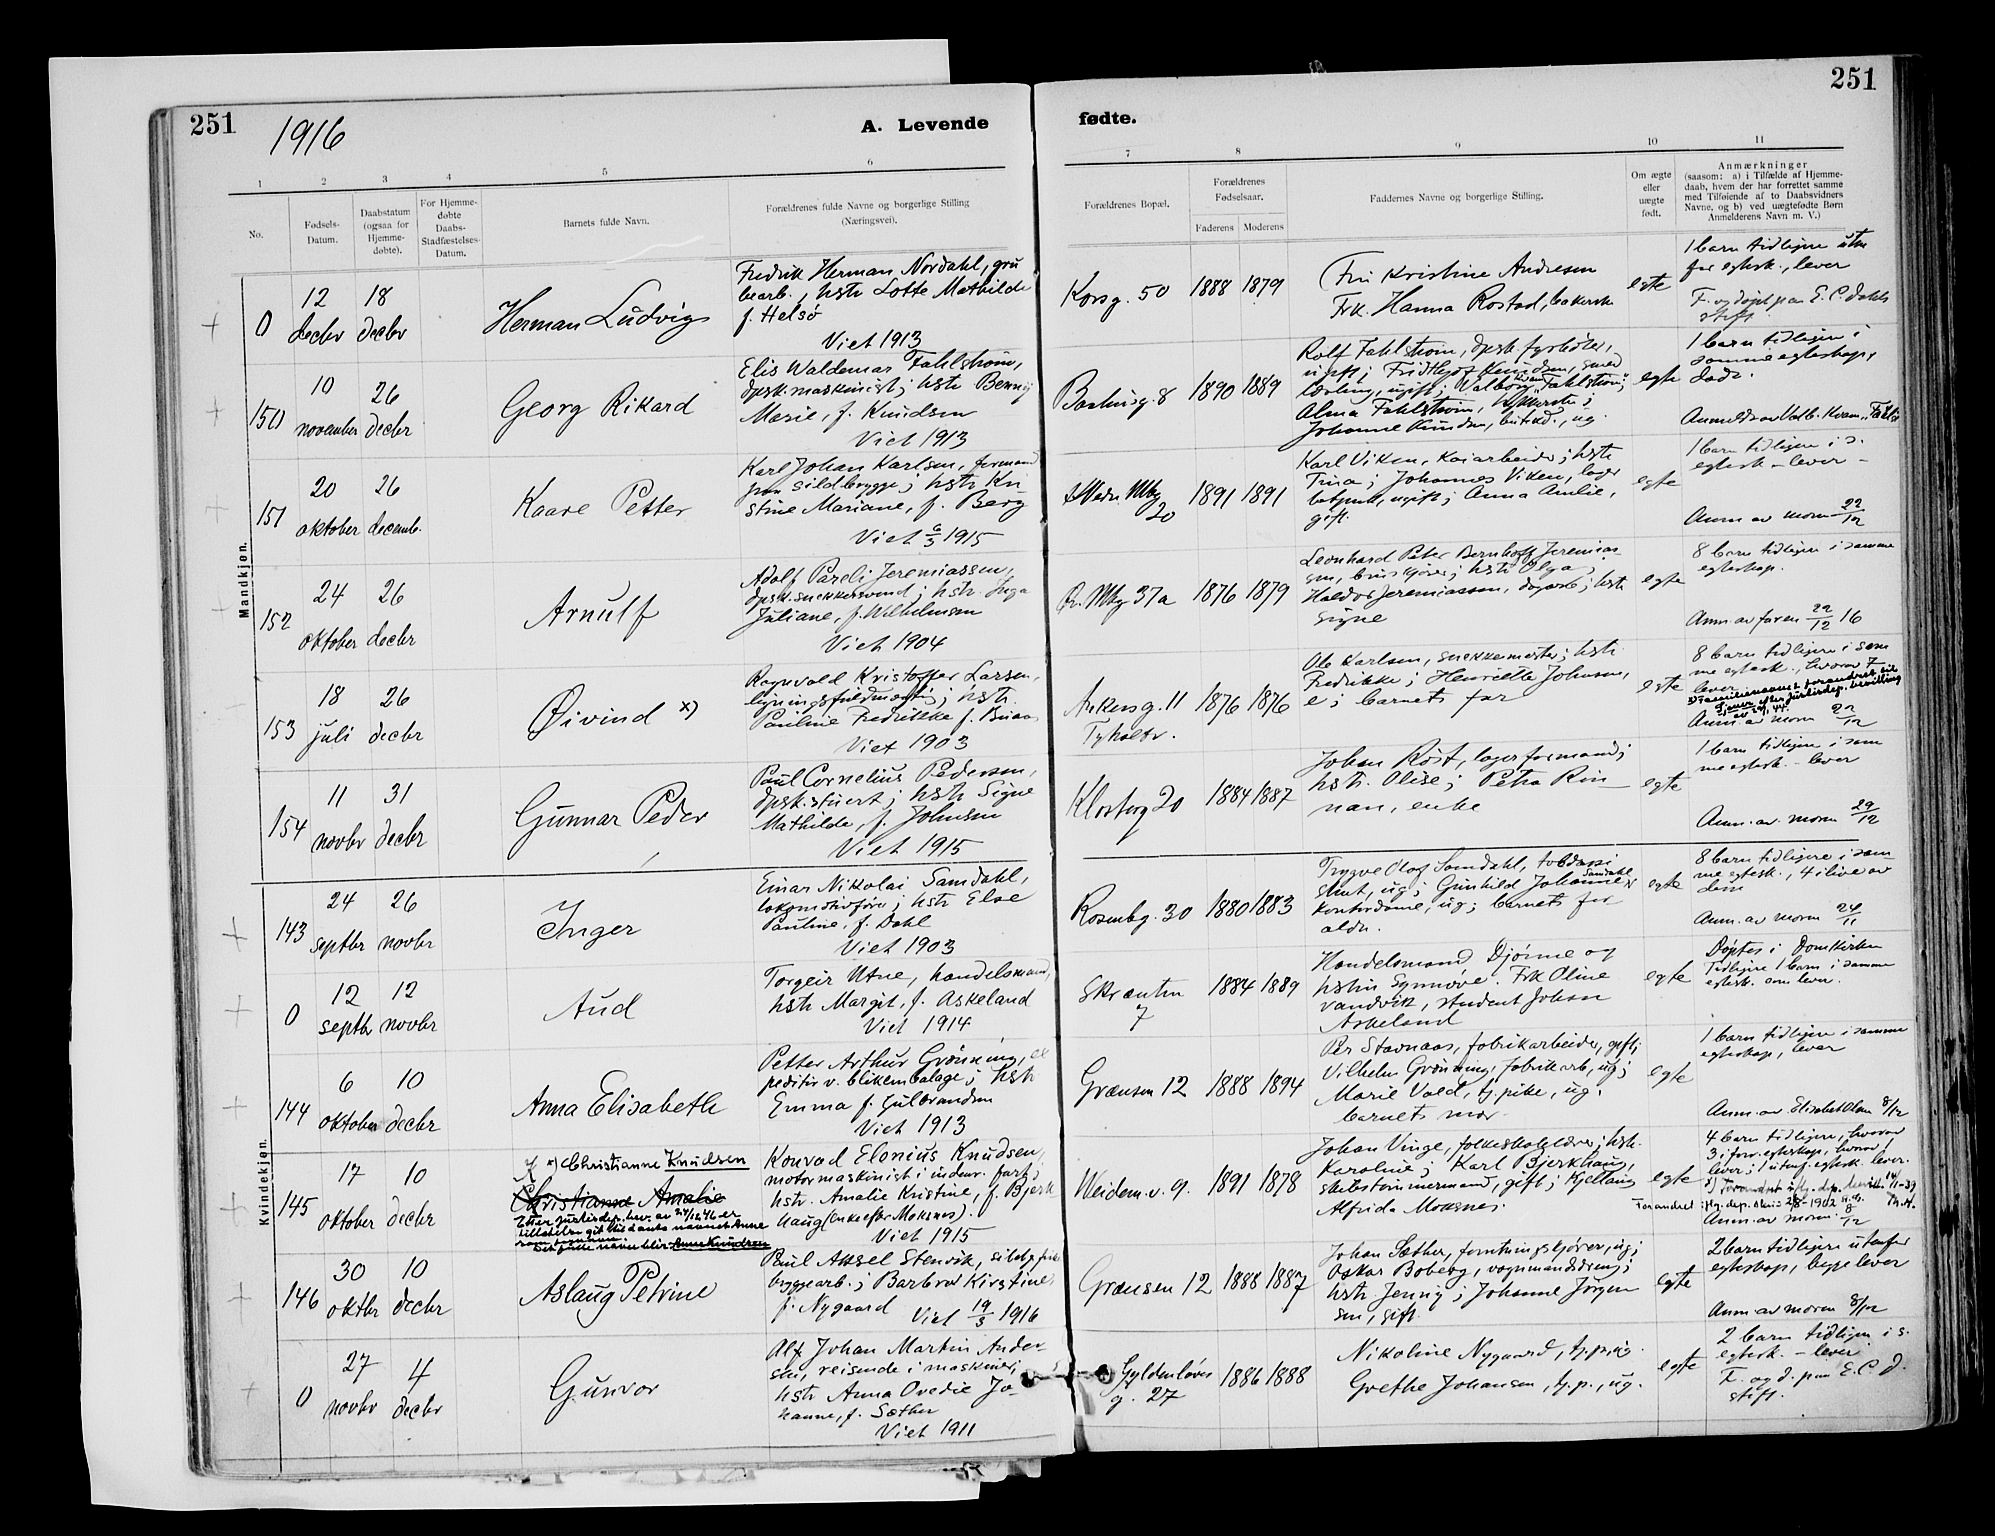 251
1916
A. Levende
fødte.
251
1
2
3
4
5
6
7
8
9
10
11
No.
Fødsels-
Datum.
Daabstatum
(ogsaa for
Hjemme-
døbte).
For Hjemme-
døbte
Daabs-
Stadfæstelses-
Datum.
Barnets fulde Navn.
Forældrenes fulde Navne og borgerlige Stilling
(Næringsvei).
Forældrenes Bopæl.
Forældrenes
Fødselsaar.
Faderens
Moderens
Faddernes Navne og borgerlige Stilling.
Om ægte
eller
uægte
født.
Anmærkninger
(saasom: a) i Tilfælde af Hjemme-
daab, hvem der har forrettet samme
med Tilføiende af to Daabsvidners
Navne, og b) ved uægtefødte Børn
Anmelderens Navn m. V.)
Mandkjøn.
0
12 decbr
18 decbr
Herman Ludvig
Fredrik Herman Nordahl, gru
bearb., hstr Lotte Mathilde
f. Helsø
Viet 1913
Korsg. 50
1888 1879
Fru Kristine Andresen
Frk. Hanna Rostad,
egte
1 barn tidligere utn
for egtesk., lever
F. og døpt paa E. C. Dahls
stift.
150
10 november
26 decbr
Georg Rikard
Elis Waldemar Fahlstrøm,
dpsk.maskinist; hstr Benny
Marie, f. Knudsen
Viet 1913
Baahusg. 8
1890 1889
Rolf Fahlstrøm, dpsk. fyrbøter,
ugift; Fridtljof Knudsen, smed
lærling, ugift; Valborg Kvam "Fahlstrøm";
Alma Fahlstrøm,
Johanne Knudsen, butikd., ug.
egte
1 barn tidligere i
samme egteskap,
død.
Anmeldt av Valb. Kvam "Fahlst
151
20 oktober
26 decemb.
Kaare Petter
Karl Johan Karlsen, formand
paa sildbrygge; hstr Kri
stine Mariane, f. Berg
Viet 6/3 1915
Nedre Mbg
20
1891 1891
Karl Viken, kaiarbeider; hstr
Trina; Johannes Viken, lager
betjent, ugift; Anna Amelie,
gift.
egte
1 barn tidligere i s.
egtesk – lever –
Anm. av moren 22/12
152
24 oktober
26 decbr
Arnulf
Adolf Pareli Jeremiassen,
dpsk.snekkersvend; hstr Inga
Juliane, f. Wilhelmsen
Viet 1904
Ø. Mbg 37a
1876 1879
Leonhard Peter Bernhoff Jeremias-
sen, bruskjører; hstr Olga;
Haldor Jeremiassen, dagarb; hstr
Signe
egte
8 barn tidligere i samme
egteskap.
Anm. av faren 22/12 16
153
18 juli
26 decbr
Øivind x)
Ragnvald Kristoffer Larsen,
ligningsfuldmægtig; hstr
Pauline Fredrikke f. Buaas
Viet 1903
Ankersg. 11
Tyholtv.
1876 1876
Ole Karlsen, snekkermester; hstr
Fredrikke; Henriette Johnsen,
e; barnets far
egte
8 barn tidligere i sam
me egtesk., hvorav 7
lever
x) Familienavnet forandret til
Gjener efter Justisdep. bevilling
Anm. av moren 22/12
154
11 novbr
31 decbr
Gunnar Peder
Paul Cornelius Pedersen,
dpsk.stuert; hstr Signe
Mathilde, f. Johnsen
Viet 1915
Klosterg 20
1884 1887
Johan Røst, lagerformand;
hstr. Olise; Petra Rin
nan, enke
egte
1 barn tidligere i sam
me egtesk. – lever
Anm. av. moren 29/12
Kvindekjøn.
143
24 septbr
26 novbr
Inger
Einar Nikolai Samdahl,
lokomotivfører; hstr Else
Pauline, f. Dahl
Viet 1903
Rosenbg. 30
1880 1883
Trygve Olaf Samdahl, toldassi
stent, ug; Gunhild Johanne Samdahl,
kontordame, ug; barnets for
eldre.
egte
8 barn tidligere i sam–
me egtesk., 4 i live av
dem
Anm. av moren 24/11
0
12 septbr
12 novbr
Aud
Torgeir Utne, handelsmand,
hstr Margit, f. Askeland
Viet 1914
Skrænten
7
1884 1889
Handelsmand Djønne og
hstru Synnøve. Frk Oline
Vandvik, student Johan
Askeland
egte
Døptes i Domkirken
Tidligere 1 barn i samme
egtesk. som lever.
144
6 oktober
10 decbr
Anna Elisabeth
Petter Arthur Grønning, ex
peditør v. blikemballage; hstr
Emma f. Gulbrandsen
Viet 1913
Grænsen 12
1888 1894
Per Stavnaas, fabrikarbeider, gift;
Vilhelm Grønning, fabrikarb, ug;
Marie Vold, tj.pike, ug.
barnets mor.
egte
1 barn tidligere i samme
egteskap, lever
Anm. av Elisabet Olsen 8/12
145
17 oktober
10 decbr
x) Christianne Knudsen
Christianne Amalie
Etter Justisdep. bev. av 24/10 46 er
tillatelse git til å anta navnet Anne
som fornavn
Det fulle navn blir Anne Knudsen
Konrad Elonius Knudsen,
motormaskinist i indenr. fart;
hstr. Amalie Kristine, f. Bjerk
haug (Enke efter Moksnes).
Viet 1915
Weidem.v. 9.
1891 1878
Johan Vinge, folkeskolelærer; hstr.
Karoline; Karl Bjerkhaug,
skibstømmermand, gift; Kjellaug
Alfrida Moksnes.
egte
4 barn tidligere, hvorav
3 i forr. egteskap, hvorav 1
lever; 1 utenf. egtesk. lever.
Anm. av moren 8/12
146
30 oktbr
10 decbr
Aslaug Petrine
Paul Aksel Stenvik,
bryggearb.; Barbro Kirstine
f. Nygaard Viet 19/3 1916
Grænsen 12
1888 1887
Johan Sæther, forretningskjører, ug;
Oskar Boberg, vognmandsdreng;
hstr Jenny; Johanne Jørgen
sen, gift.
egte
2 barn tidligere utenfor
egteskap, begge lever
Anm. av moren 8/12
0
27 novbr
4 decbr
Gunvor
Alf Johan Martin Ander-
sen, reisende i maskiner;
hstr Anna Ovedie Jo-
hanne, f. Sæther
Viet 1911
Gyldenløves
g. 27
1886 1888
Nikoline Nygaard, tj.p., ug.
Grethe Johansen, tj.p., ug.
egte
2 barn tidligere i s.
egtesk. – lever
F. og d. paa E. C. D.
stift.